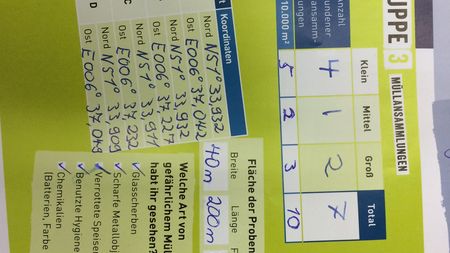 UPPE 3 MÜLLANSAMMLUNGEN
Klein Mittel Groß Total
nzahl
undener
ansamm-
ungen
4 1 2 7
10.000 m²
5 2 3 10
t Koordinaten
Nord N51° 33,932
Ost E006° 37,042
Nord N51° 33,932
Ost E006° 37,227
C Nord N51° 33,911
Ost E006° 37,232
D Nord N51° 33,909
Ost E006 37,049
Fläche der Proben
Breite Länge F
40m 200m
Welche Art von
gefährlichem Mül
habt ihr gesehen?
✓ Glasscherben
✓ Scharfe Metallobj
✓ Verrottete Speiser
✓ Benutzte Hygiene
✓ Chemikalien
(Batterien, Farbe